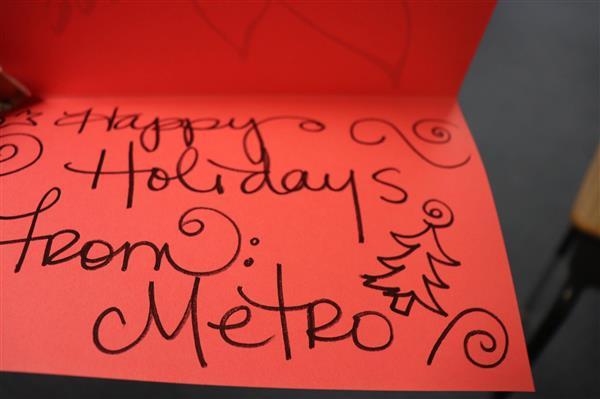 Happy
Holidays
from:
Metro